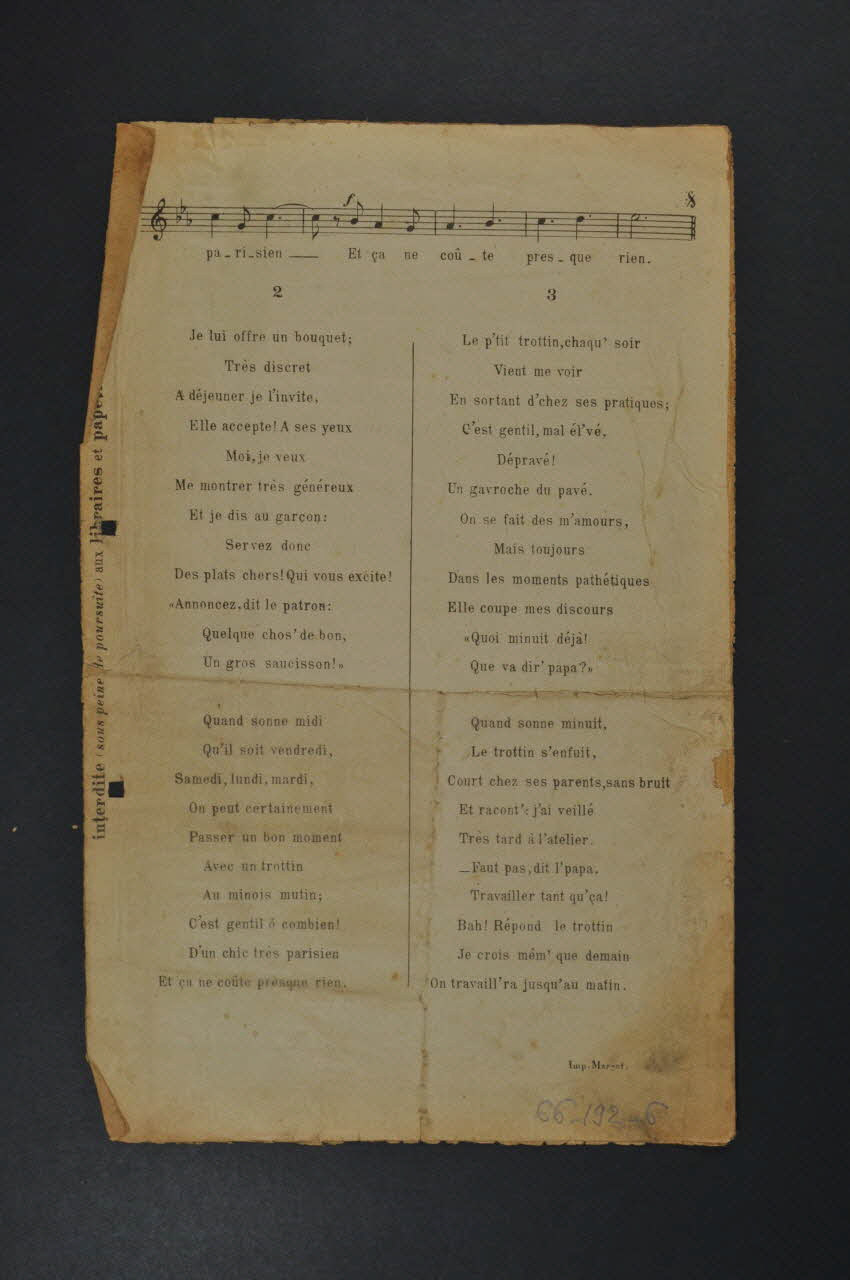 f
pa_ri_sien ___ Et ça ne coû_te pres_que rien.
2
Je lui offre un bouquet;
Très discret
A déjeuner je l'invite,
Elle accepte! A ses yeux
Moi, je veux
Me montrer très généreux
Et je dis au garçon:
Servez donc
Des plats chers! Qui vous excite!
«Annoncez, dit le patron:
Quelque chos' de bon,
Un gros saucisson!»
Quand sonne midi
Qu'il soit vendredi,
Samedi, lundi, mardi,
On peut certainement
Passer un bon moment
Avec un trottin
Au minois mutin;
C'est gentil ô combien!
D'un chic très parisien
Et ça ne coûte presque rien.
3
Le p'tit trottin, chaqu' soir
Vient me voir
En sortant d'chez ses pratiques;
C'est gentil, mal él'vé,
Dépravé!
Un gavroche du pavé.
On se fait des m'amours,
Mais toujours
Dans les moments pathétiques
Elle coupe mes discours
«Quoi minuit déjà!
Que va dir' papa?»
Quand sonne minuit,
Le trottin s'enfuit,
Court chez ses parents, sans bruit
Et racont': j'ai veillé
Très tard à l'atelier.
_Faut pas, dit l'papa,
Travailler tant qu'ça!
Bah! Répond le trottin
Je crois mêm' que demain
On travaill'ra jusqu'au matin.
Imp. Margot.
66-192-6
interdite (sous peine de poursuite) aux libraires et